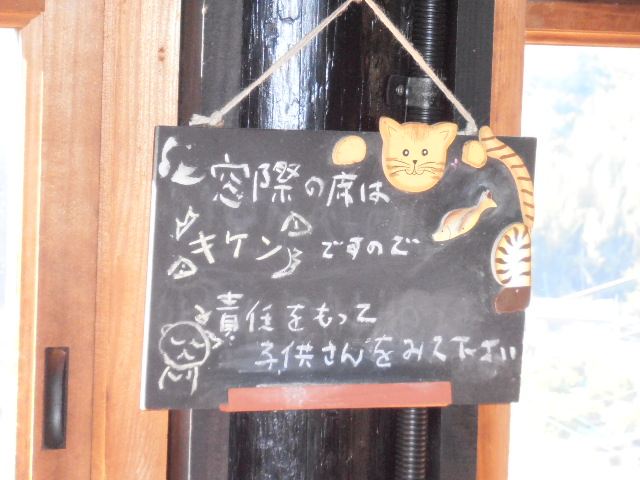 窓際の席は
キケンですので
責任をもって
子供さんをみて下さい